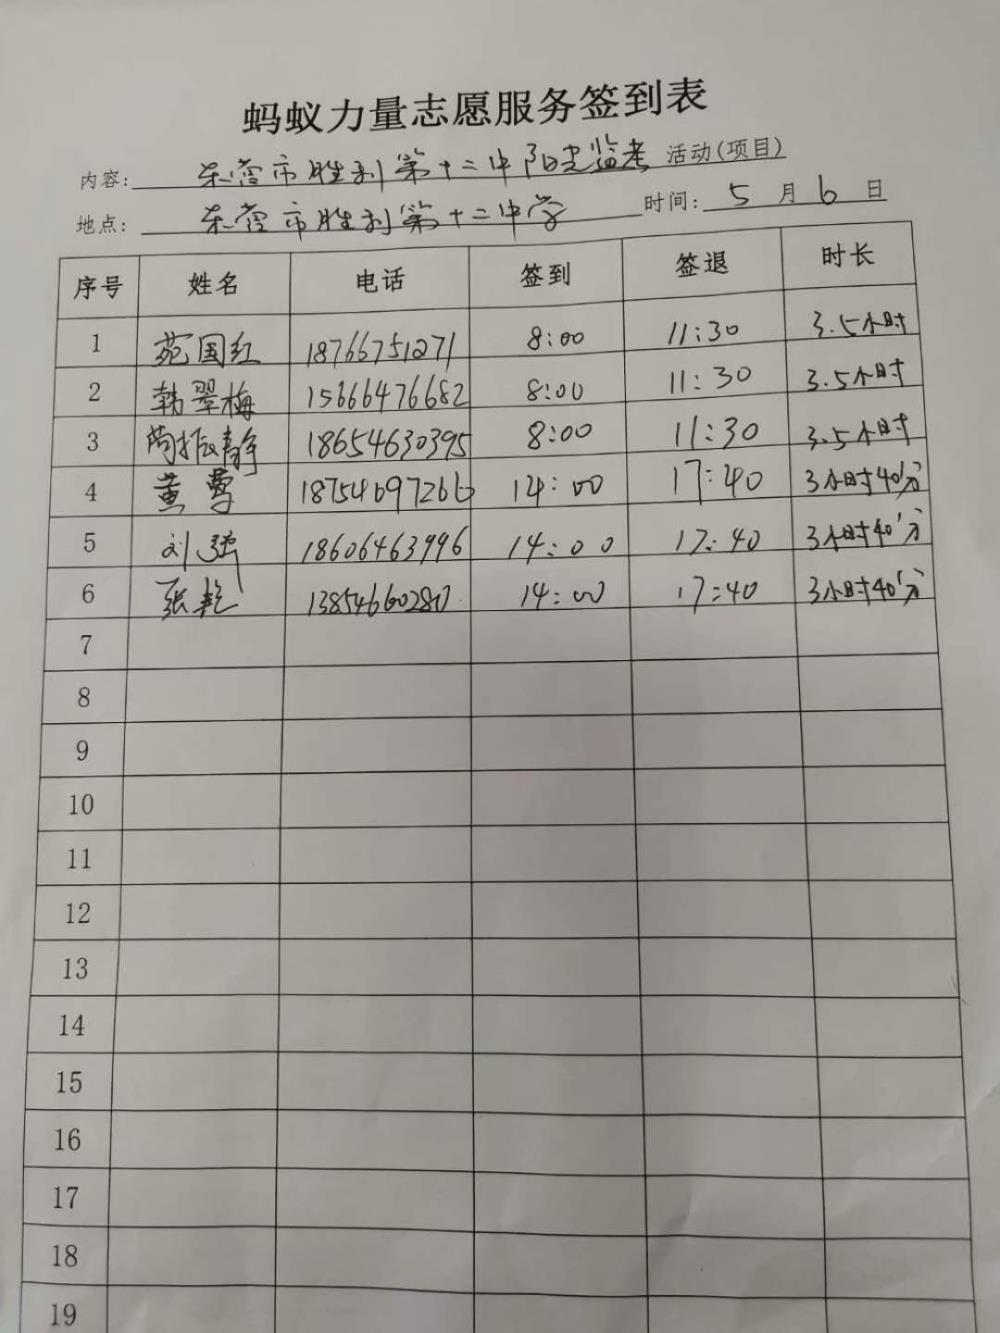 蚂蚁力量志愿服务签到表
内容: 东营市胜利第十二中阳光监考 活动(项目)
地点: 东营市胜利第十二中学 时间: 5 月 6 日
序号 姓名 电话 签到 签退 时长
1 苑国红 18766751271 8:00 11:30 3.5小时
2 韩翠梅 15666476682 8:00 11:30 3.5小时
3 振静 18654630395 8:00 11:30 3.5小时
4 黄 18754697266 14:00 17:40 3小时40分
5 刘强 18606463996 14:00 17:40 3小时40分
6 张艳 13854660280 14:00 17:40 3小时40分
7
8
9
10
11
12
13
14
15
16
17
18
19